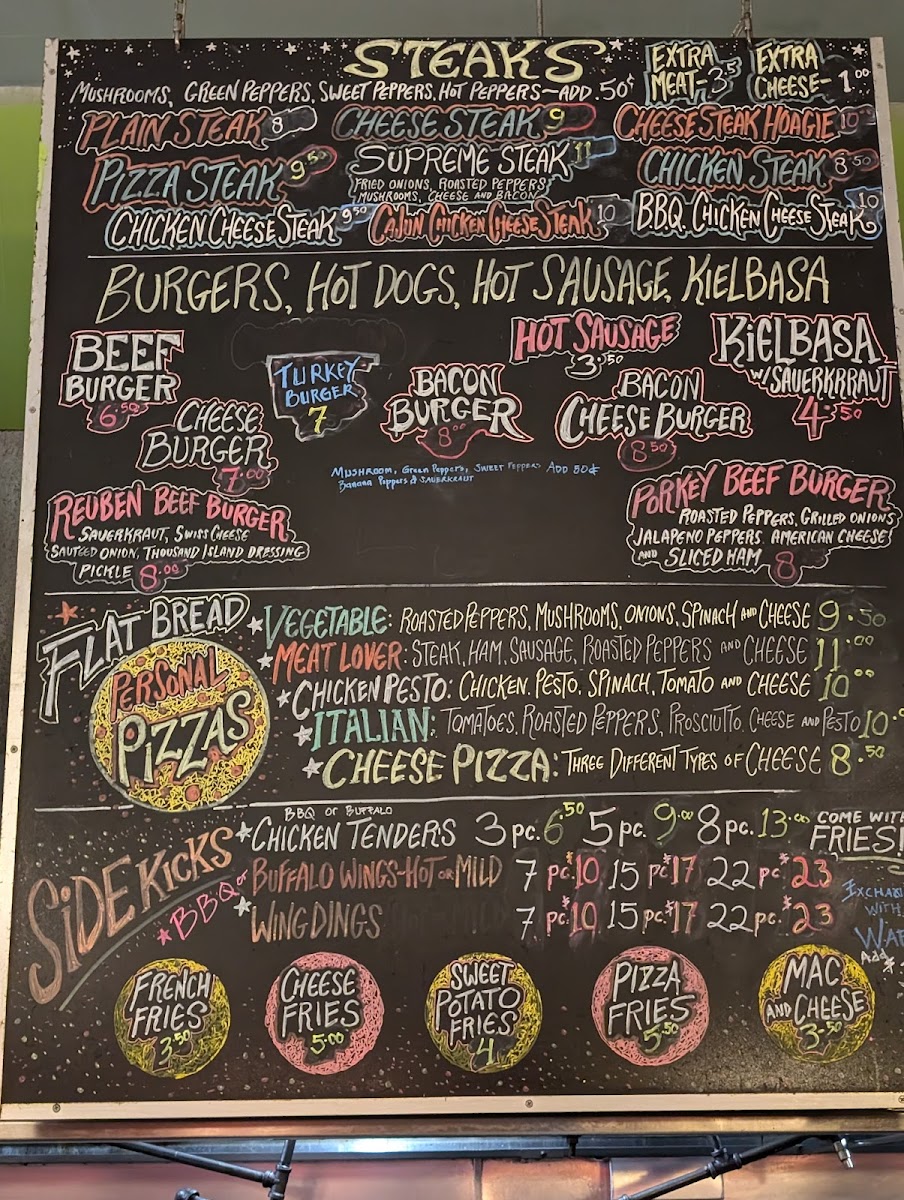 STEAKS
EXTRA MEAT- 3.5
EXTRA CHEESE- 1.00
MUSHROOMS, GREEN PEPPERS, SWEET PEPPERS, HOT PEPPERS - ADD .50¢
PLAIN STEAK 8
CHEESE STEAK 9
CHEESE STEAK HOAGIE 10
PIZZA STEAK 9.50
SUPREME STEAK 11
FRIED ONIONS, ROASTED PEPPERS
MUSHROOMS, CHEESE AND BACON
CHICKEN STEAK 8.50
CHICKEN CHEESE STEAK 9.50
CAJUN CHICKEN CHEESE STEAK 10
B.B.Q. CHICKEN CHEESE STEAK 10
BURGERS, HOT DOGS, HOT SAUSAGE, KIELBASA
BEEF
BURGER
6.50
TURKEY
BURGER
7
HOT SAUSAGE
3.50
KIELBASA
W/ SAUERKRRAUT
4.50
CHEESE
BURGER
7.00
BACON
BURGER
8.00
BACON
CHEESE BURGER
8.50
MUSHROOM, GREEN PEPPERS, SWEET PEPPERS ADD 50¢
BANANA PEPPERS & SAUERKRAUT
REUBEN BEEF BURGER
SAUERKRAUT, SWISS CHEESE
SAUTEED ONION, THOUSAND ISLAND DRESSING
PICKLE 8.00
PORKEY BEEF BURGER
ROASTED PEPPERS, GRILLED ONIONS
JALAPENO PEPPERS AMERICAN CHEESE
AND SLICED HAM 8
FLAT BREAD
PERSONAL
PIZZAS
VEGETABLE: ROASTED PEPPERS, MUSHROOMS, ONIONS, SPINACH AND CHEESE 9.50
MEAT LOVER: STEAK, HAM, SAUSAGE, ROASTED PEPPERS AND CHEESE 11.00
CHICKEN PESTO: CHICKEN, PESTO, SPINACH, TOMATO AND CHEESE 10.00
ITALIAN: TOMATOES, ROASTED PEPPERS, PROSCIUTTO CHEESE AND PESTO 10.
CHEESE PIZZA: THREE DIFFERENT TYPES OF CHEESE 8.50
SIDE KICKS
BBQ OR BUFFALO
CHICKEN TENDERS 3 PC. 6.50 5 PC. 9.00 8 PC. 13.00
COME WITH
FRIES!
BBQ OR BUFFALO WINGS-HOT OR MILD 7 PC. 10 15 PC 17 22 PC 23
WING DINGS 7 PC. 10 15 PC. 17 22 PC. 23
WITH
FRENCH
FRIES
3.50
CHEESE
FRIES
5.00
SWEET
POTATO
FRIES
4
PIZZA
FRIES
5.50
MAC
AND CHEESE
3.50